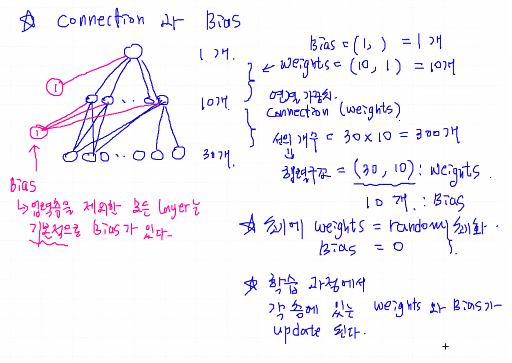 ☆ Connection 과 Bias
1개.
10개.
30개.
1
1
Bias
↳ 입력층을 제외한 모든 layer는
기본적으로 Bias가 있다.
Bias = (1, ) = 1개
← weights = (10, 1) = 10개
연결 가중치.
Connection (weights)
선의 개수 = 30 x 10 = 300개
행렬구조 = (30, 10) : weights.
10개. : Bias
☆ 초기에 weights = random 초기화.
Bias = 0
☆ 학습 과정에서
각 층에 있는 weights 와 Bias가
update 된다.